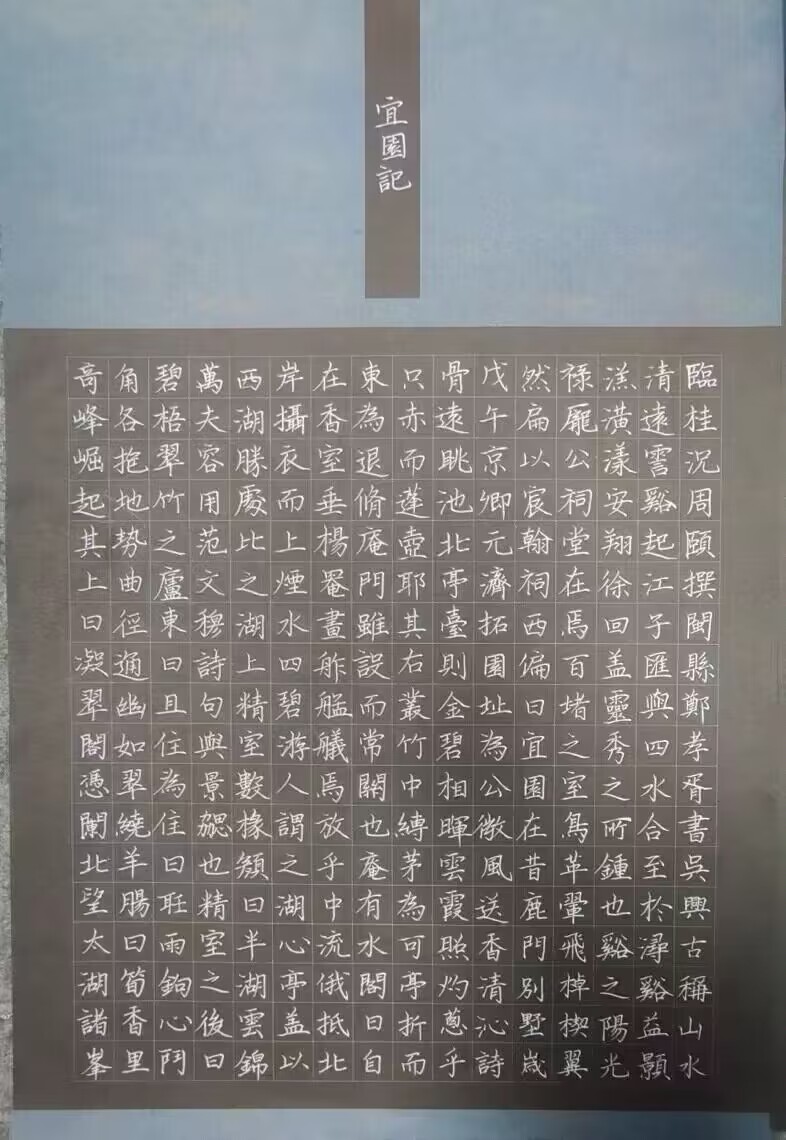 宜園記
臨桂況周頤撰閩縣鄭孝胥書吳興古稱山水
清遠霅谿起江子匯與四水合至於潯谿益顥
潢漾安翔徐回盖靈秀之所鍾也谿之陽光
禄龎公祠堂在焉百堵之室鳥革翬飛棹楔翼
然扁以宸翰祠西偏曰宜園在昔鹿門別墅歲
戊午京卿元濟拓園址為公微風送香清沁詩
骨遠眺池北亭臺則金碧相暉雲霞照灼蒽乎
只赤而蓬壺耶其右叢竹中縛茅為可亭折而
東為退脩庵門雖設而常關也庵有水閣曰自
在香室垂楊罨畫舴艋艤焉放乎中流俄抵北
岸攝衣而上煙水四碧游人謂之湖心亭盖以
西湖勝處比之湖上精室數椽頟曰半湖雲錦
萬夫容用范文穆詩句與景勰也精室之後曰
碧梧翠竹之廬東曰且住為佳曰聽雨鉤心鬥
角各抱地勢曲徑通幽如翠繞羊腸曰筍香里
奇峰崛起其上曰凝翠閣憑闌北望太湖諸峯